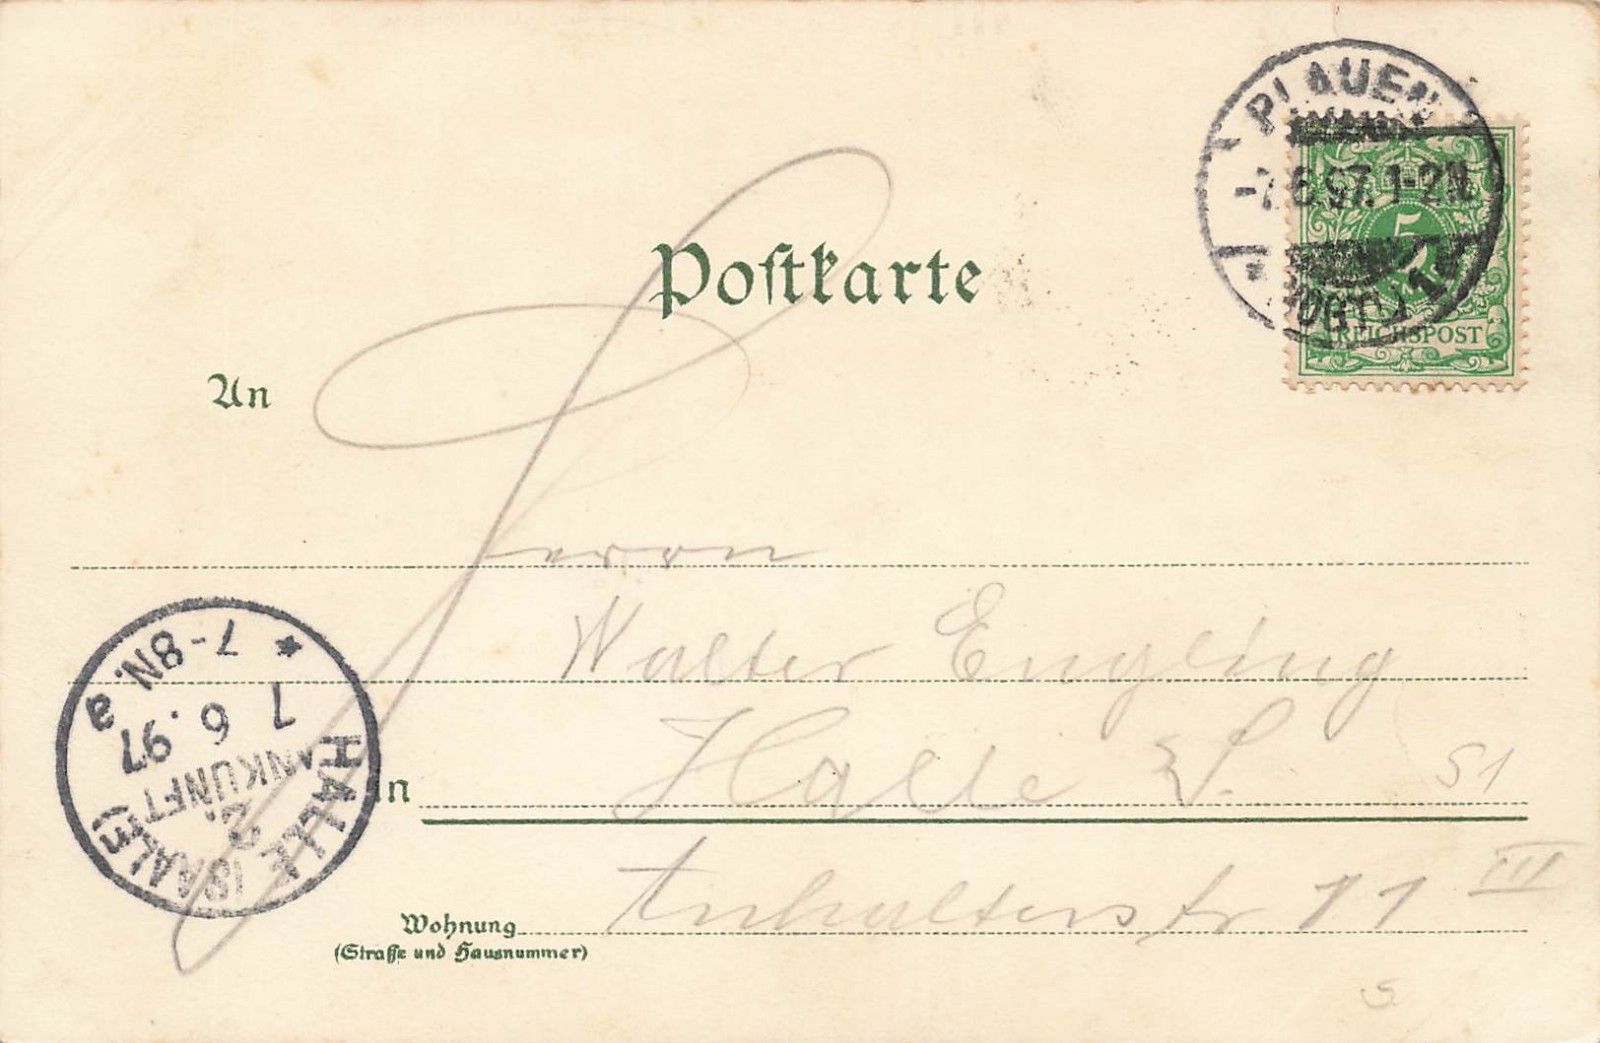 PLAUEN
-7.6.97.1-2N.
(VOGTL) 1
5
REICHSPOST
Postkarte
An
Herrn
Walter Engling
in Halle a. S.
Anhalterstr 11 III
Wohnung
(Straße und Hausnummer)
HALLE (SAALE)
ANKUNFT
2
7 6. 97
7-8N.
a
S1
S.